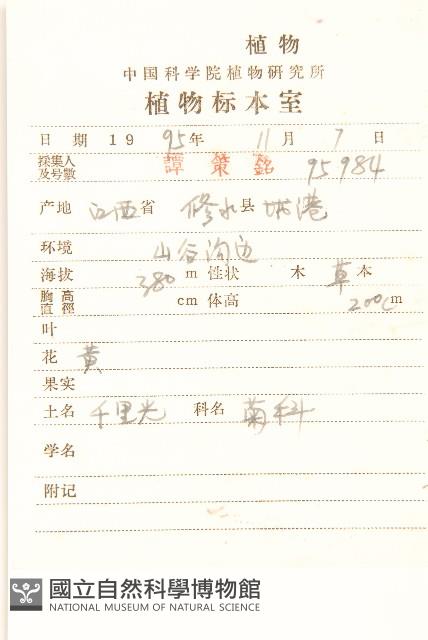 植物
中国科学院植物研究所
植物标本室
日期 1995年 11月 7日
採集人及号數 譚策銘 95984
产地 江西省 修水县 坳港
环境 山谷沟边
海拔 380 m 性状 木 草本
胸高直徑 cm 体高 200cm
叶
花 黄
果实
土名 千里光 科名 菊科
学名
附记
國立自然科學博物館
NATIONAL MUSEUM OF NATURAL SCIENCE